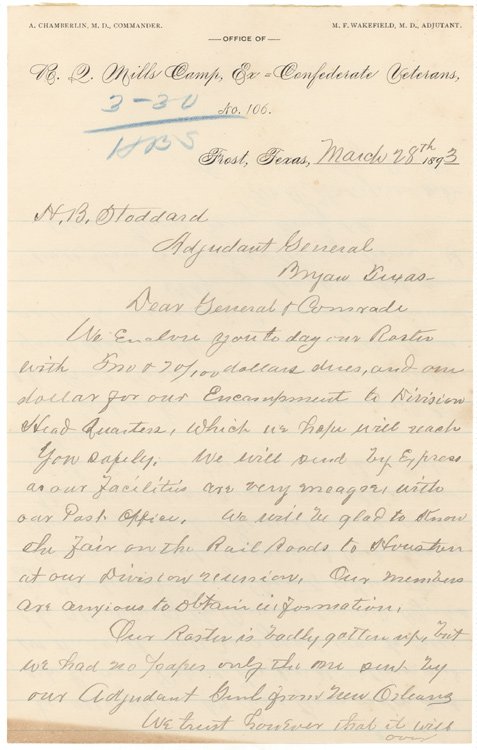 A. CHAMBERLIN, M. D., COMMANDER. M. F. WAKEFIELD, M. D., ADJUTANT.
—OFFICE OF—
R. Q. Mills Camp, Ex-Confederate Veterans,
3-30
No. 106.
HBS
Frost, Texas, March 28th 1893
H. B. Stoddard
Adjudant General
Bryan Texas
Dear General & Comrade
We Enclose you to day our Roster
with Two & 70/100 dollars dues, and one
dollar for our Encampment to Division
Head Quarters, which we hope will reach
You safely. We will send by Express
as our facilities are very meagre, with
our Post Office. We will be glad to Know
the Fair on the Rail Roads to Houston
at our Division reunion. Our members
are anxious to Obtain information.
Our Roster is badly gotten up, but
we had no paper only the one sent by
our Adjudant Genl from New Orleans
We trust however that it will